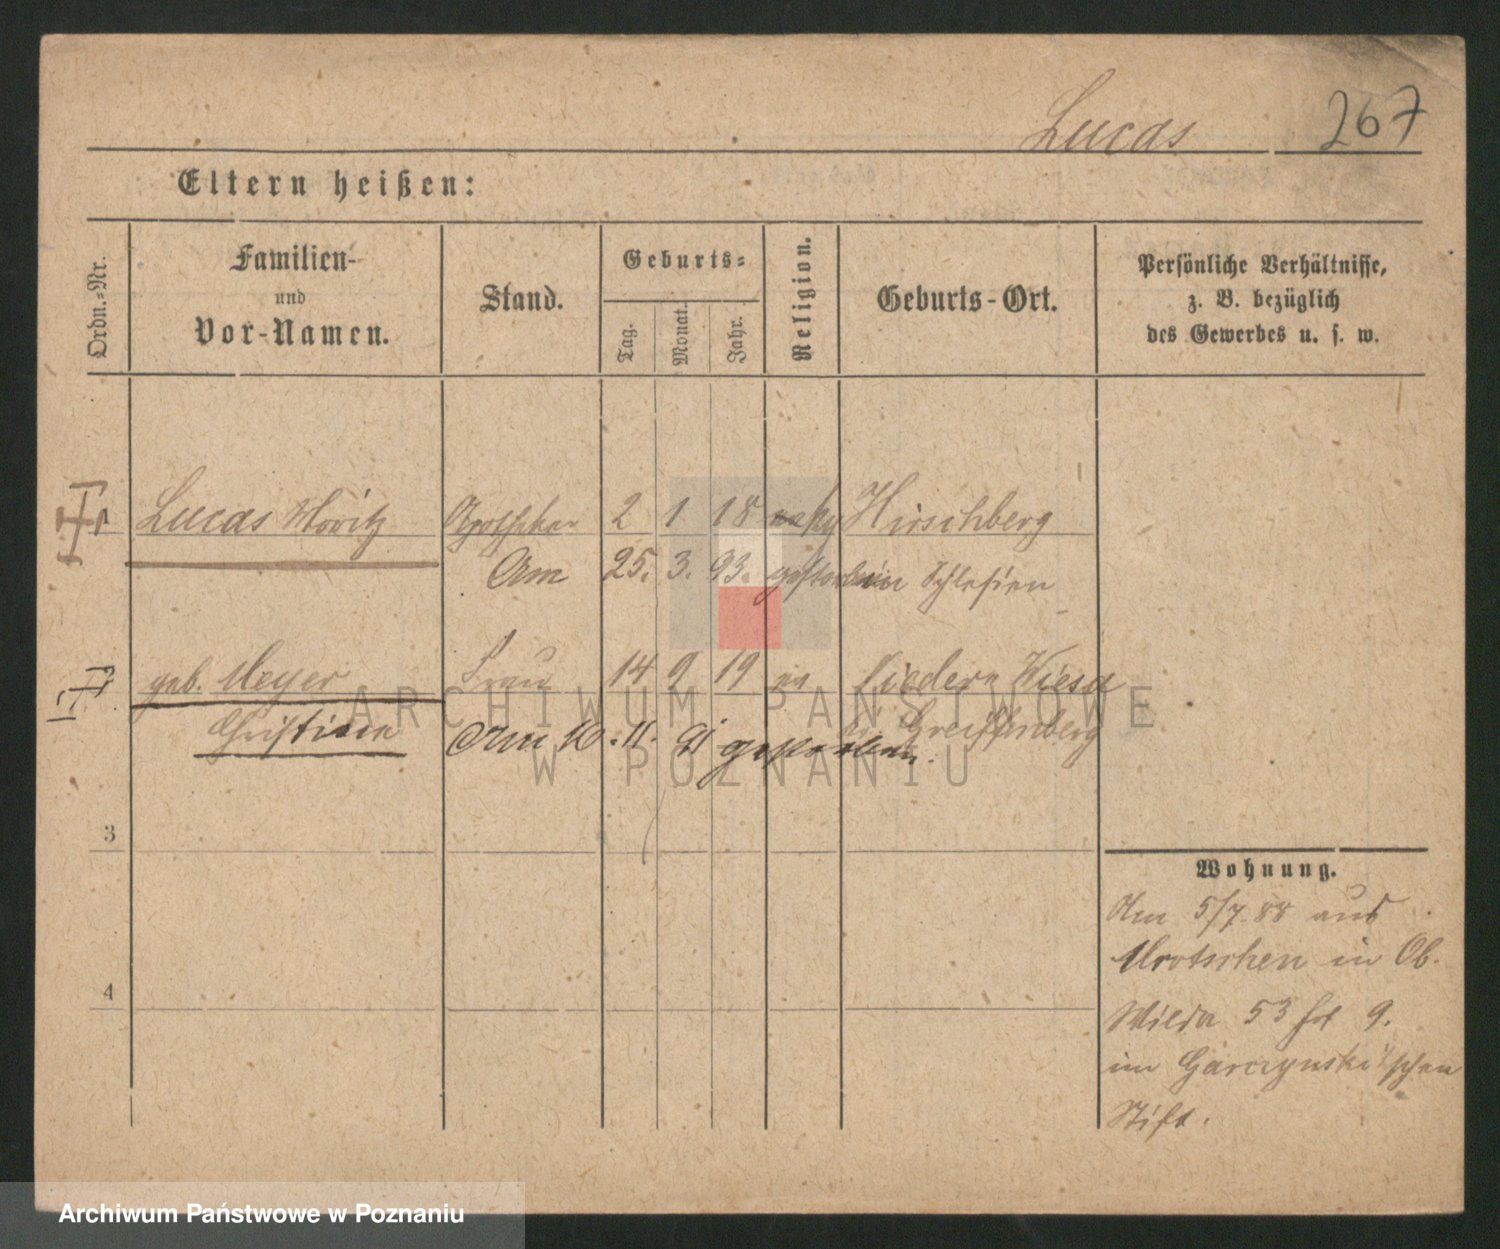 Lucas 267
Eltern heißen:
Ordn.-Nr.
Familien-
und
Vor-Namen.
Stand.
Geburts-
Tag.
Monat.
Jahr.
Religion.
Geburts-Ort.
Persönliche Verhältnisse,
z. B. bezüglich
des Gewerbes u. s. w.
1 Lucas Moritz Apotheker 2 1 18 Hirschberg
Am 25. 3. 93. gestorben in Schlesien
geb. Meyer Frau 14 9 19 Niedern Wiesa
Christiane Am 10. 11. 91 gestorben. Greiffenberg
ARCHIWUM PAŃSTWOWE
W POZNANIU
3
4
Wohnung.
Am 5/7 88 aus
Mrotschen in Ob.
Wilda 53 9.
im Garczynski'schen
Stift.
Archiwum Państwowe w Poznaniu